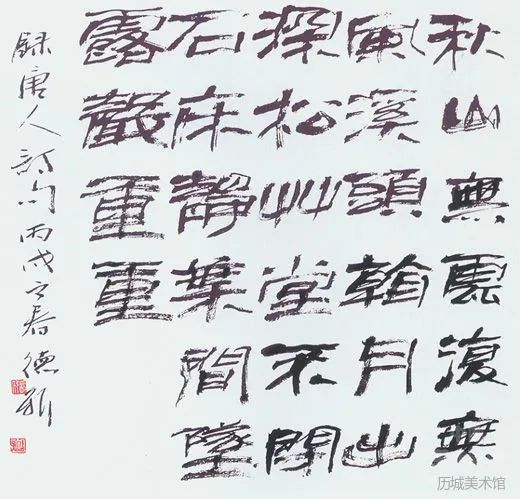 秋山無雲復無
風溪頭看月出
深松艸堂不閉
石床靜葉間墜
露聲重重
録唐人詩句丙戌之春德
历城美术馆